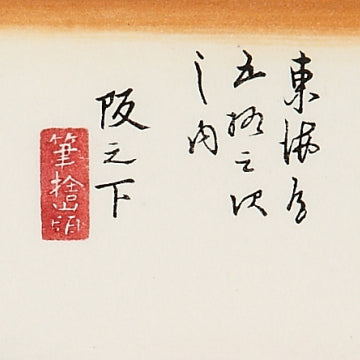 東海道
五拾三次
之内
阪之下
筆捨山頂